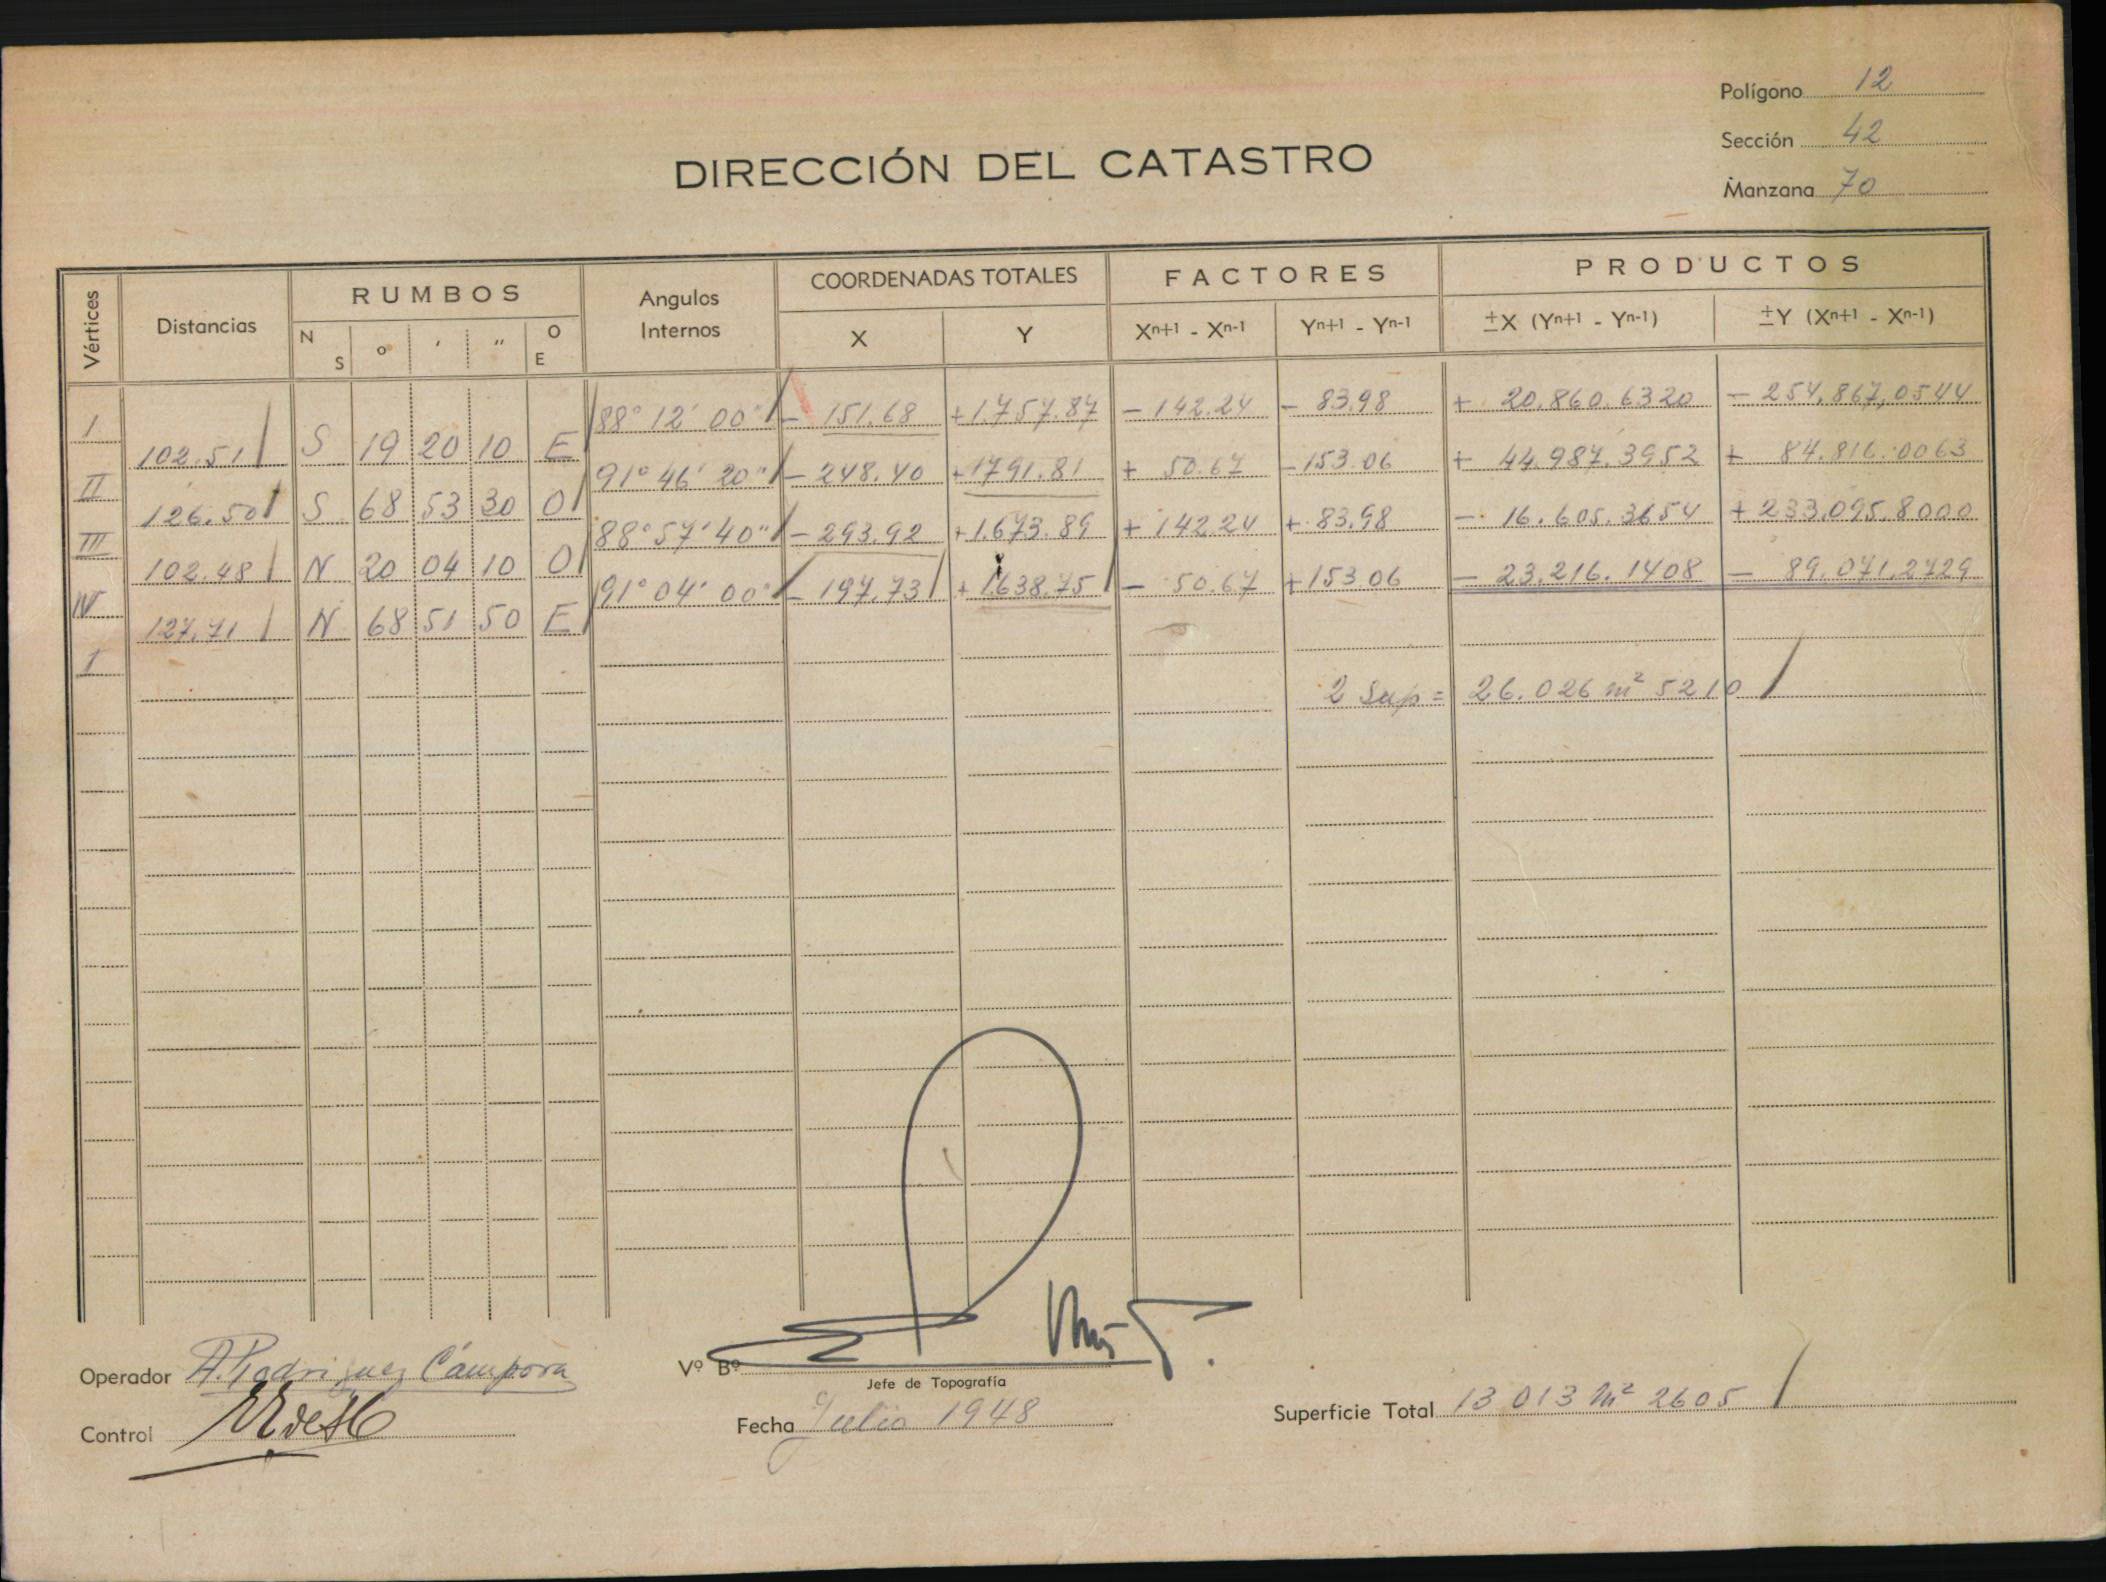 Polígono 12
Sección 42
Manzana 70
DIRECCIÓN DEL CATASTRO
Vértices Distancias RUMBOS Angulos Internos COORDENADAS TOTALES FACTORES PRODUCTOS
N S o ' '' O E X Y Xn+1 - Xn-1 Yn+1 - Yn-1 ±X (Yn+1 - Yn-1) ±Y (Xn+1 - Xn-1)
I 88° 12' 00" - 151.68 +1.757.87 - 142.24 - 83.98 + 20.860.6320 - 254.867,0544
102.51 S 19 20 10 E
II 91° 46' 20" - 248.40 +1791.81 + 50.67 - 153.06 + 44.987.3952 + 84.816.0063
126.50 S 68 53 30 O
III 88° 57' 40" - 293.92 +1.673.89 + 142.24 + 83.98 - 16.605.3654 + 233.095.8000
102.48 N 20 04 10 O
IV 91° 04' 00" - 197.73 +1.638.75 - 50.67 +153.06 - 23.216.1408 - 89.071,2729
127.71 N 68 51 50 E
I
2 Sup = 26.026 m² 5210
Operador A. Rodriguez Cámpora
Vº Bº
Jefe de Topografía
Control
Fecha Julio 1948
Superficie Total 13 013 m² 2605